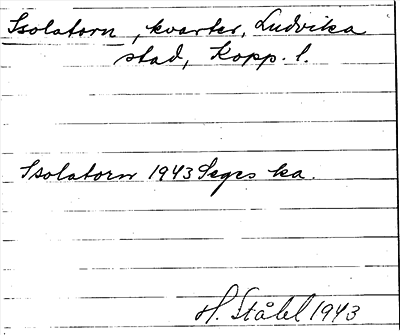 Isolatorn, kvarter, Ludvika
stad, Kopp. l.
Isolatorn 1943 Segrs ka.
H. Ståhl 1943